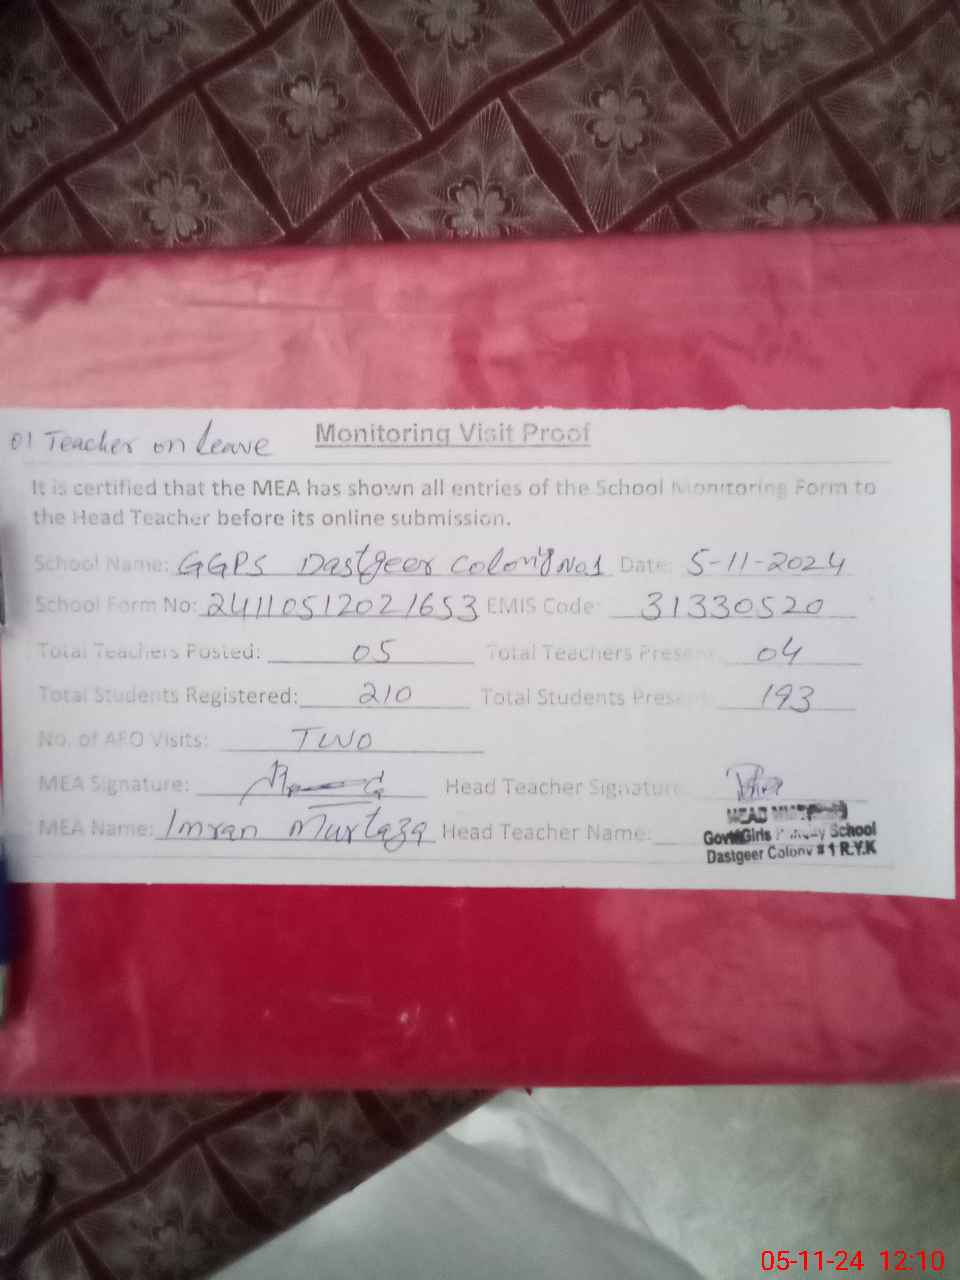 01 Teacher on Leave Monitoring Visit Proof
It is certified that the MEA has shown all entries of the School Monitoring Form to
the Head Teacher before its online submission.
School Name: GGPS Dastgeer Colony No1 Date: 5-11-2024
School Form No: 24110512021653 EMIS Code: 31330520
Total Teachers Posted: 05 Total Teachers Present 04
Total Students Registered: 210 Total Students Present 193
No. of AEO Visits: TWO
MEA Signature: Head Teacher Signature
MEA Name: Imran Murtaza Head Teacher Name:
HEAD
Govt Girls Primary School
Dastgeer Colony # 1 R.Y.K
05-11-24 12:10